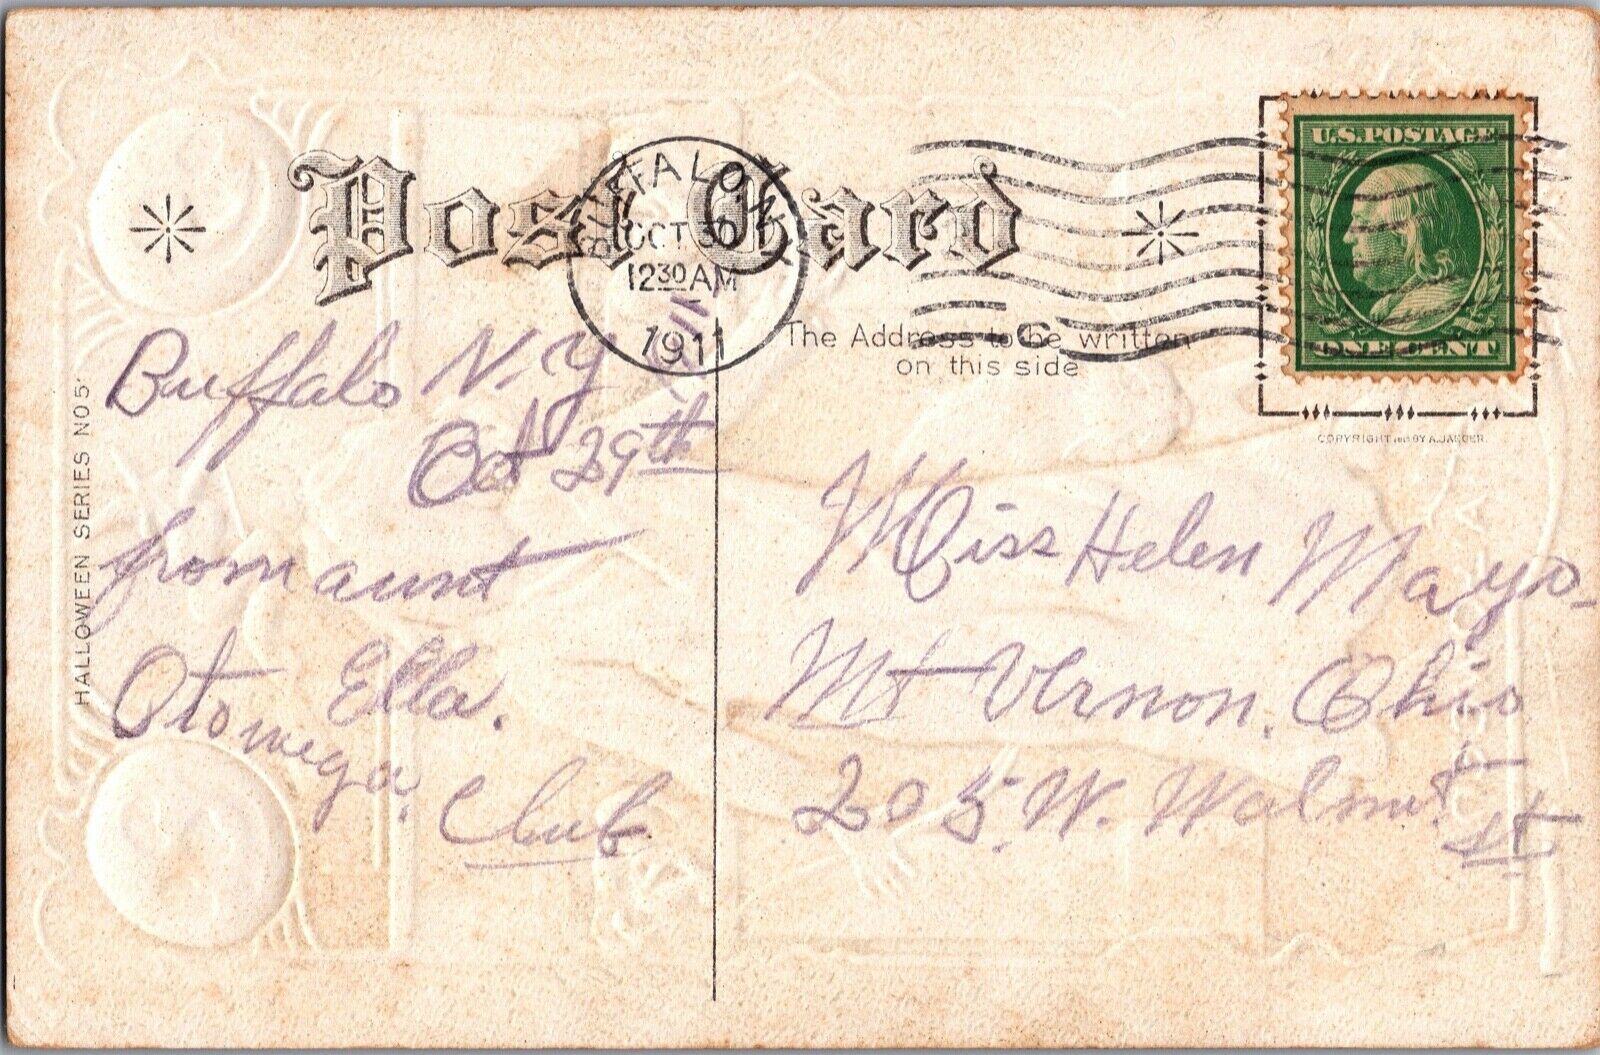 Post Card
BUFFALO N.Y.
OCT 30
12 30 AM
1911
U.S. POSTAGE
ONE CENT
The Address to be written
on this side
COPYRIGHT BY A. JAEGER.
HALLOWEEN SERIES NO 5
Buffalo N.Y
Oct 29th
from aunt
Ella.
Otowega
Club
Miss Helen Mayo
Mt Vernon. Ohio
205 W. Walnut
St